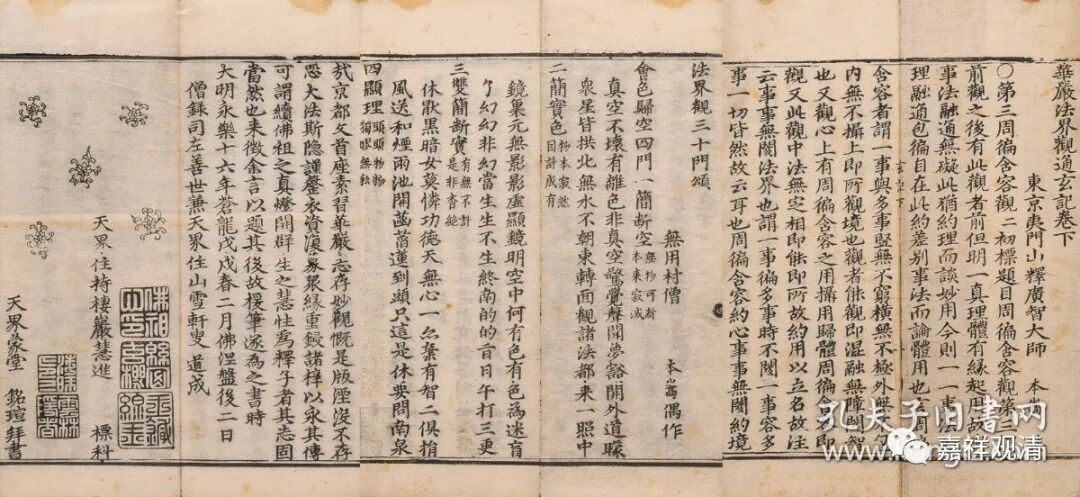 華嚴法界觀通玄記卷下
東京夷門山釋廣智大師 本
〇第三周徧含容觀二初標題目周徧含容觀第三
前觀之後有此觀者前但明一真理體有緣起用故
事法融通無礙此猶約理而談妙用今則一一事法
理融通包徧自在此約差別事法而論體用也 周
含容者謂一事與多事竪無不窮橫無不極外無不
內無不攝上即所觀境也觀者能觀即混融無障閡智
也又觀心上有周徧含容之用攝用歸體周徧含容即
觀又此觀中法無定相即能即所故約用以立名故注
云事事無閡法界也謂一事徧多事時不閡一事容多
事一切皆然故云耳也周徧含容約心事事無閡約境
法界觀三十門頌
無用村僧 本嵩偶作
會色歸空四門一簡斷空 無物可斷 本來寂滅
真空不壞有離色非真空驚覺 開夢豁開外道矇
眾星皆拱北無水不朝東轉面觀諸法都來一照中
二簡實色 物本寂然 因計成有
鏡裏元無影影虛顯鏡明空中何有色有色為迷盲
了幻幻非幻當生生不生終南的的旨日午打三更
三雙簡斷實 有無不計 是非杳絕
休猒黑暗女莫憐功德天無心一亦棄有智二俱捐
風送和煙雨池開菡萏蓮到頭只這是休要問南泉
四顯理 頭頭物物 獨眼無私
哉京都文首座素習華嚴志存妙觀慨是版湮沒不存
恐大法斯隱謹罄衣資湊募眾緣重鋟諸梓以永其傳
可謂續佛祖之真燈開群生之慧性為釋子者其志固
當然也來徵余言以題其後故 筆遂為之書時
大明永樂十六年蒼龍戊戌春二月佛涅盤後二日
僧錄司左善世兼天界住山雪軒叟 道成
天界住持棲巖慧進 標科
天界蒙堂 銘瑄拜書
孔夫子旧書网
嘉祥观清